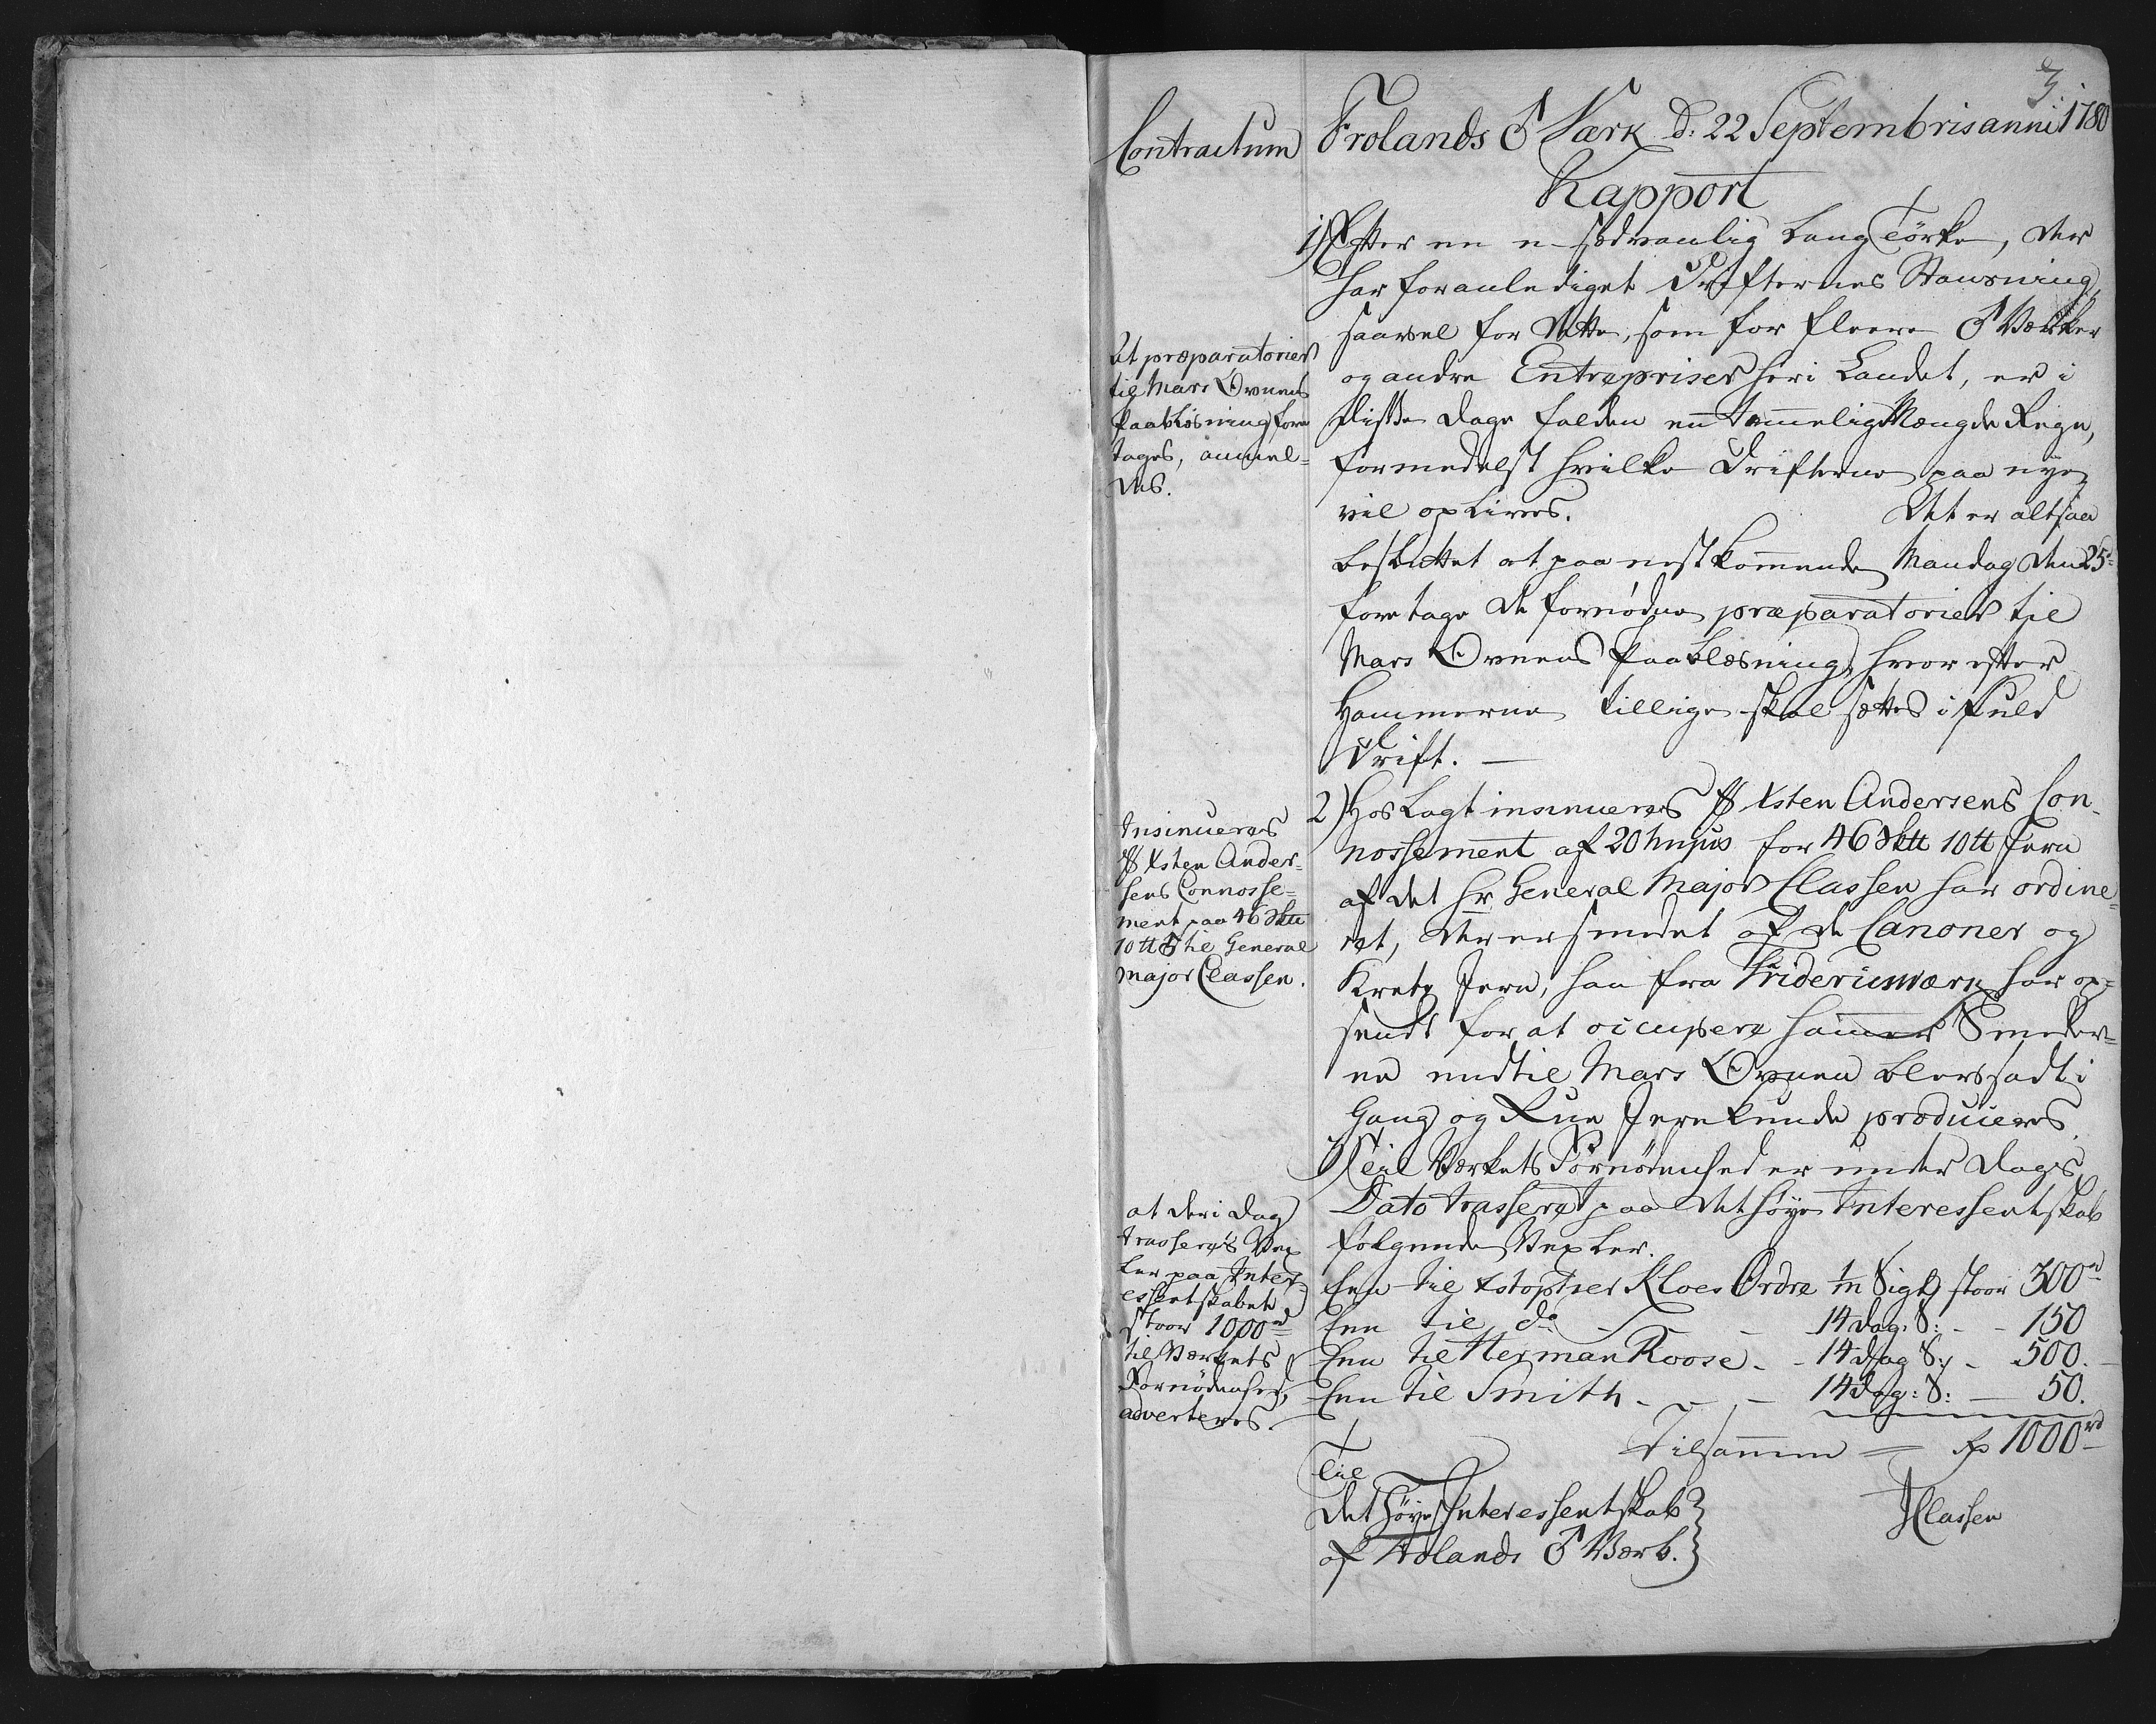 3.
Contractum
Frolands ♂ Værk d: 22 Septembris anni 1780
Rapport
1) Efter en u-sædvanlig lang Törke, der
har foranlediget Drifternes Standsning,
saavel for dette, som for fleere ♂ Værker
og andre Entrepriser her i Landet, er i
disse dage falden en temmelig Mængde Regn,
formedelst hvilke Drifterne paa nye
vil oplives. Det er altsaa
besluttet at paa nestkom̄ende Mandag den 25de
foretage de fornødne præparatorier til
Mars Ovnens Paablæsning, hvor efter
Hammerne tillige skal sættes i fuld
Drift. —
At præparatorier
til Mars Ovnens
Paablæsning fore
tages, anmel=
des.
2) Hos Lagt insinueres Sr Xsten Andersens Con-
nossement af 20 hujus for 46 Sk℔ 10 ℔ Jern
af det Hr General Major Classen har ordine=
ret, der er smedet af de Canoner og
Kretz Jern, han fra Friderichsværk har op=
sendt for at occupere Ham̄er Smeder=
ne indtil Mars Ovnen blev sadt i
Gang og Rue Jern kunde produceres.
Insinueres
Sr Xsten Ander-
sens Connosse=
ment paa 46 Sk℔
10 ℔ ♂ til General
major Classen.
3) Til Værkets Fornødenhed er under Dags
Dato trasseret paa det høye Interessentskab
følgende Vexler.
Een til Xstopher Kloes Ordre 1/m Sigt, stoor 300 rd
Een til do - - 14 dag. S: - - 150
Een til Herman Roose - - 14 dag S: - 500. -
Een til Smith - - - 14 dag: S: — 50.
Tilsam̄en = Rp 1000 rd
at der i Dag
trasseres Vex
ler paa Inter
essentskabet,
stoor 1000 rd
til Værkets
Fornødenhed,
adverteres.
Til
Det høye Interessentskab
af Frolands ♂ Værk.
JClassen